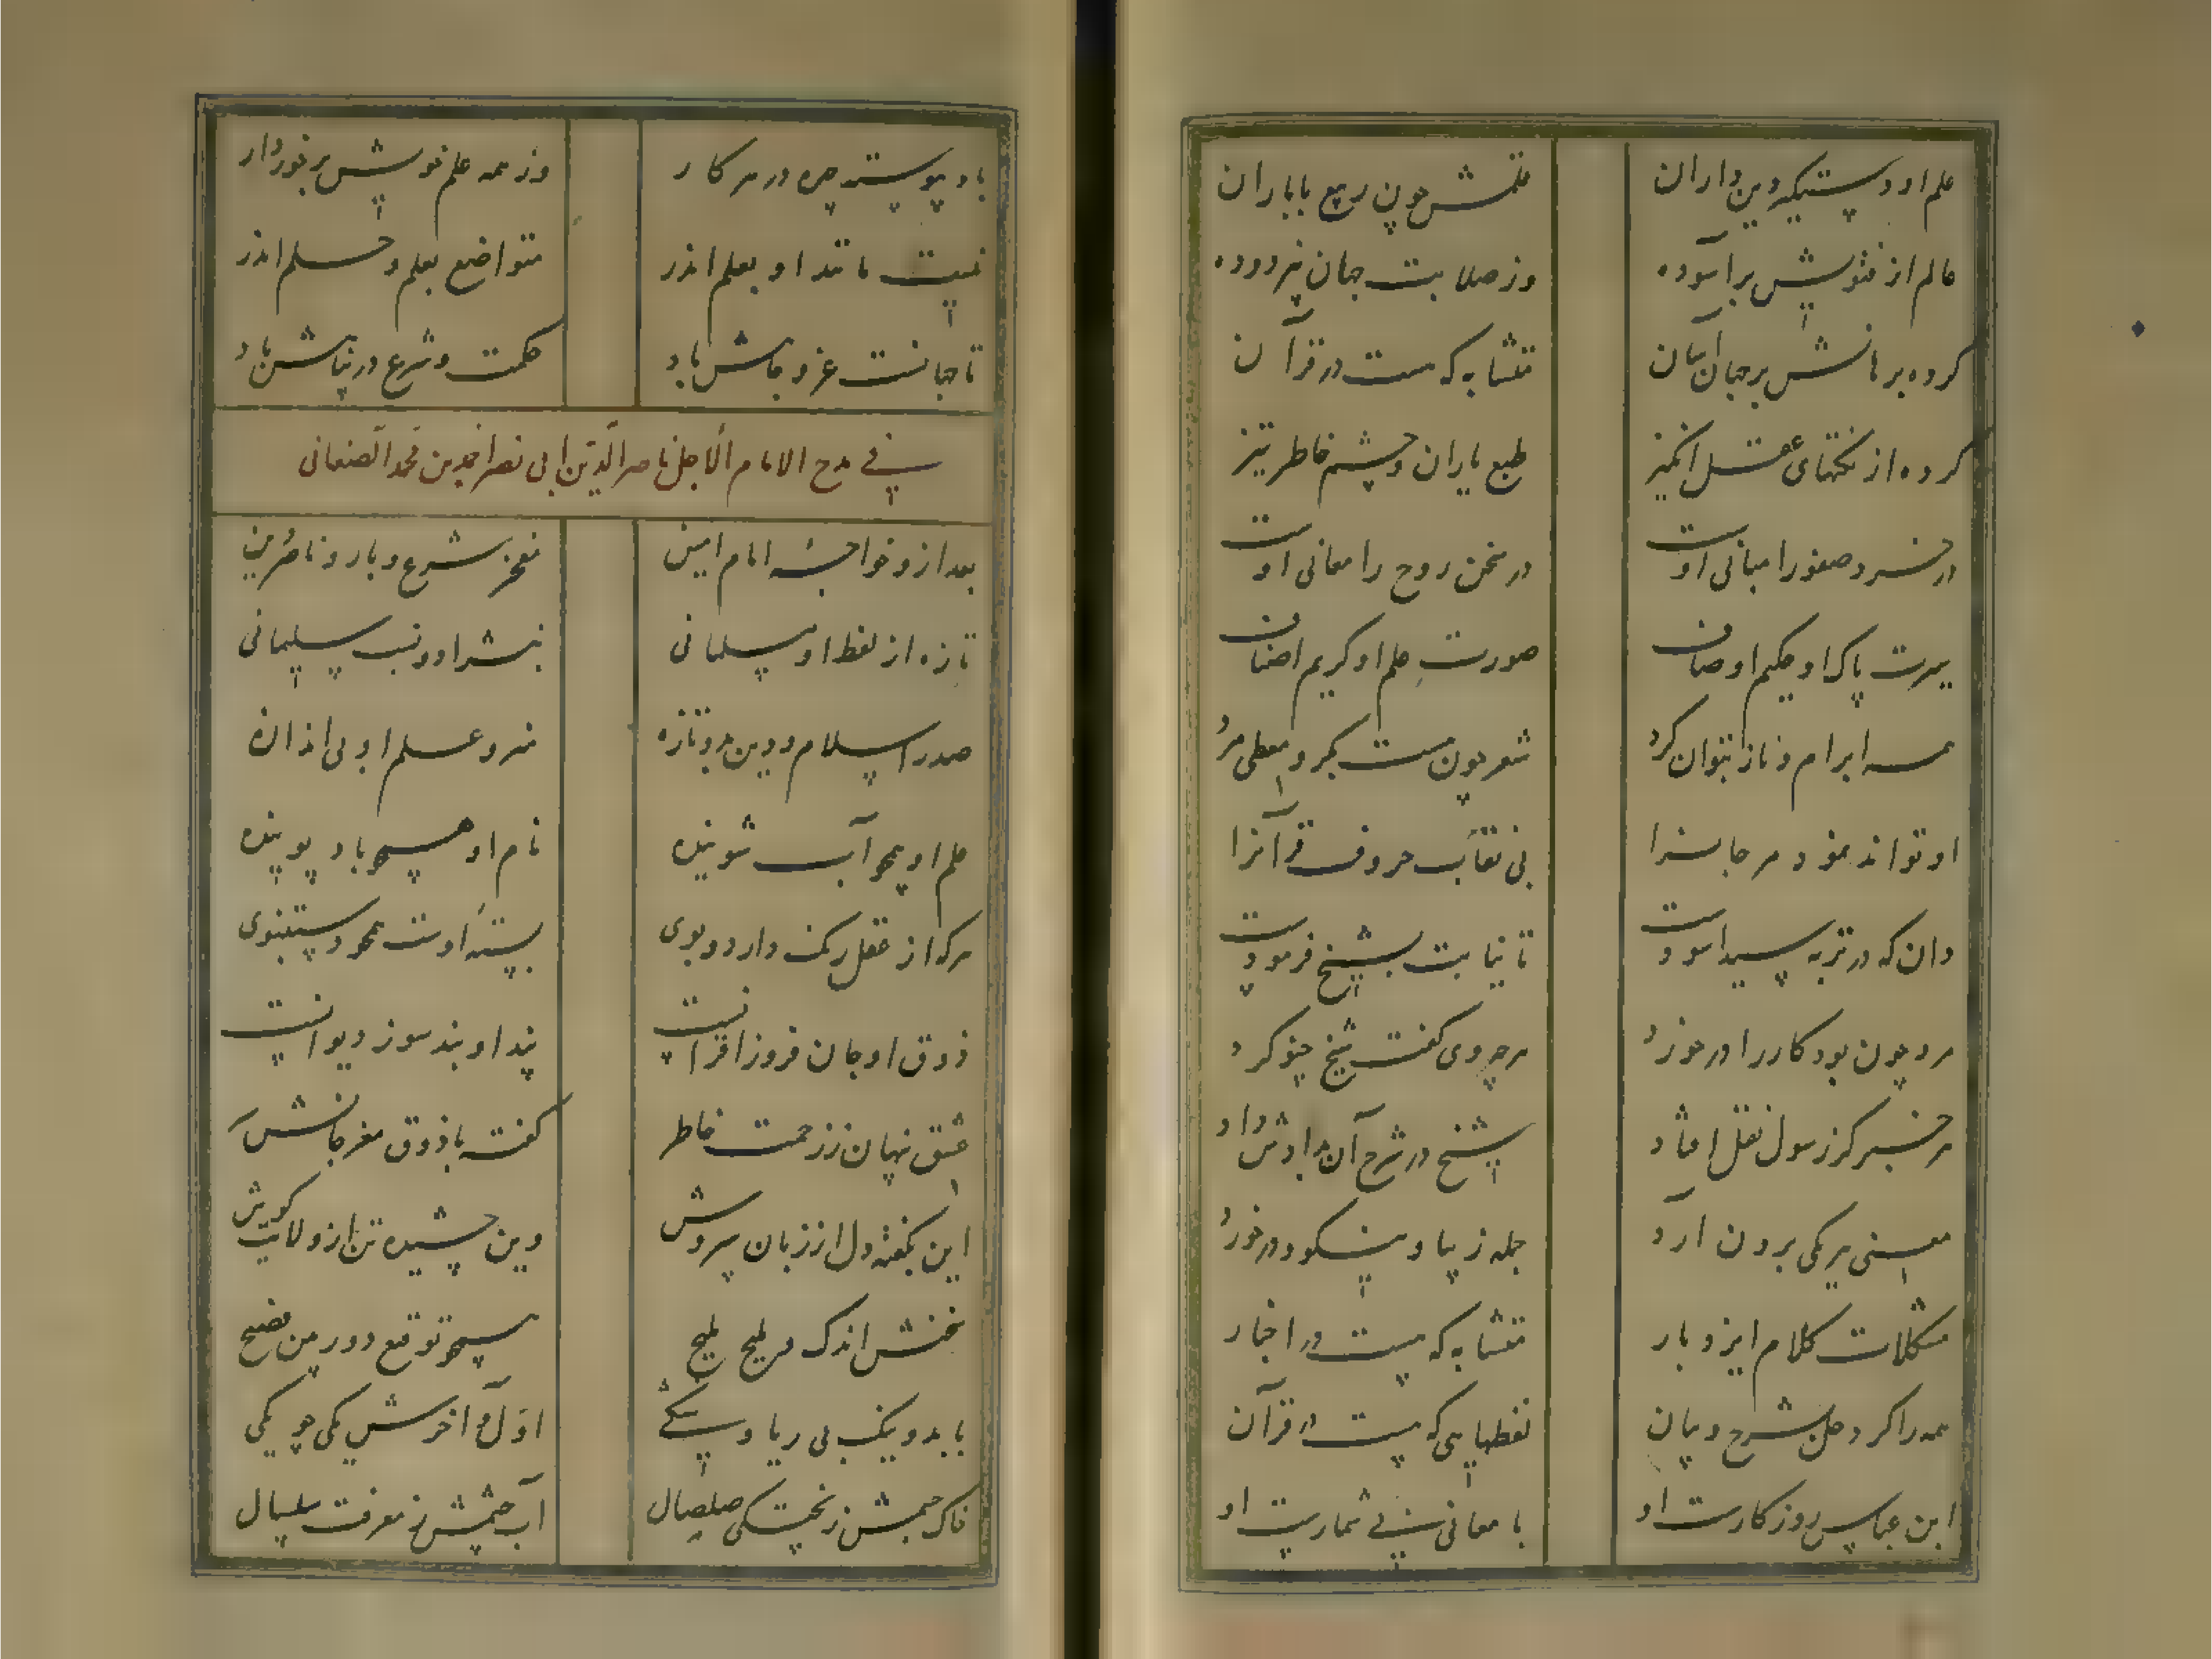 علم او دستگیر دین داران قلمش چون ربیع با باران
عالم از فتویش برآسوده وز صلابت جهان بپردوده
کرده برهانش بر جهان آسان متشابه که هست در قرآن
کرده از نکتهای عقل انگیز طبع یاران و چشم خاطر تیز
در خرد صفو را مبانی اوست در سخن روح را معانی اوست
سیرت پاک او حکیم اوصاف صورت حلم او کریم اصناف
همه ابرام و ناز بتوان کرد شعر چون هست بکر و معطی مرد
او تواند نمود مر جانرا بی نقاب حروف قرآنرا
دان که در تربه سید آسودست تا نیابت بشیخ فرمودست
مرد چون بود کار را در خورد هرچه وی گفت شیخ جنو کرد
هر خبر کز رسول نقل افتاد شیخ در شرح آن بدادش داد
معنی هر یکی برون آرد جمله زیبا و نیکو و در خورد
مشکلات کلام ایزد بار متشابه که هست در اخبار
همه را کرد حل بشرح و بیان لفظهایی که هست در قرآن
ابن عباس روزگارست او با معانی بی شمارست او
باد پیوسته چیره در هر کار وز همه علم خویش برخوردار
نیست مانند او بعلم اندر متواضع بعلم و حلم اندر
تا جهانست عز و جاهش باد حکمت و شرع در پناهش باد
فی مدح الامام الاجل ناصر الدین ابی نصر احمد بن محمد الصنعانی
بعد ازو خواجه امام امین فخر شرع و یار و ناصر دین
تازه از لفظ او مسلمانی او و نسب سلیمانی
صدر اسلام و دین بدو تازه و علم او بی اندازه
علم او همچو آب شوینده نام او همچو باد پوینده
هرکه از عقل رنگ دارد و بوی بسته اوست همچو دستنبوی
ذوق او جان فروز اقرانست پند او بند سوز دیوانست
عشق پنهان ز زحمت خاطر گفته با ذوق مغز جانش
این بگفته دل از زبان سروش وین چشیده تن از ولایت گوش
سخنش اندک و ملیح ملیح همچو توقیع دور بین فصیح
با بد و نیک بی ریا و شکی اول و آخرش یکی چو یکی
خاک جسمش ز پختگی صلصال آب چشمش ز معرفت سلسال